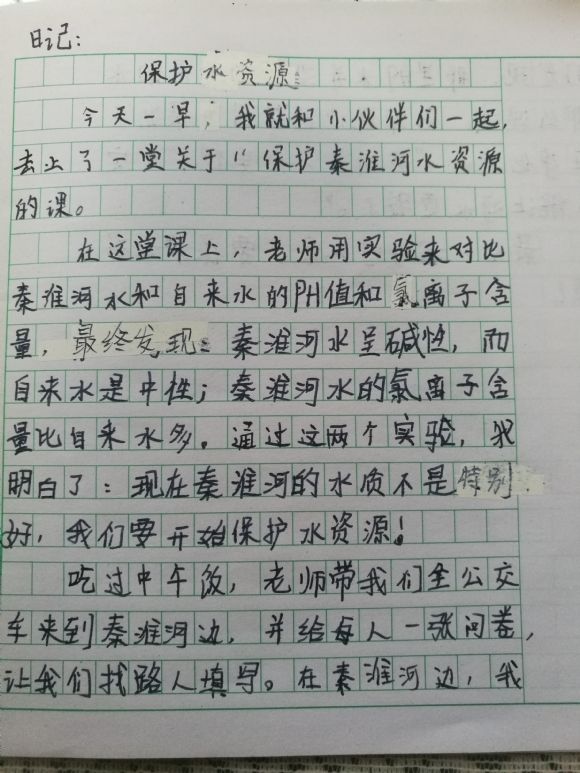 日记:
保护水资源
今天一早,我就和小伙伴们一起,
去上了一堂关于“保护秦淮河水资源
的课。
在这堂课上,老师用实验来对比
秦淮河水和自来水的PH值和氯离子含
量,最终发现:秦淮河水呈碱性,而
自来水是中性;秦淮河水的氯离子含
量比自来水多。通过这两个实验,我
明白了:现在秦淮河的水质不是特别
好,我们要开始保护水资源!
吃过中午饭,老师带我们坐公交
车来到秦淮河边,并给每人一张问卷,
让我们找路人填写。在秦淮河边,我